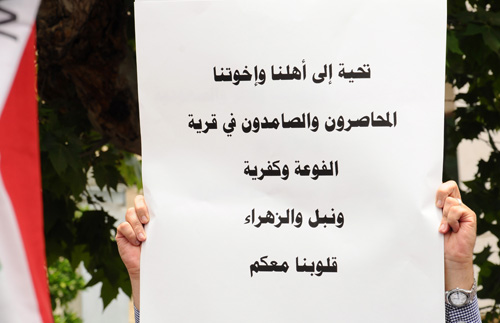 تحية إلى أهلنا وإخوتنا
المحاصرون والصامدون في قرية
الفوعة وكفرية
ونبل والزهراء
قلوبنا معكم